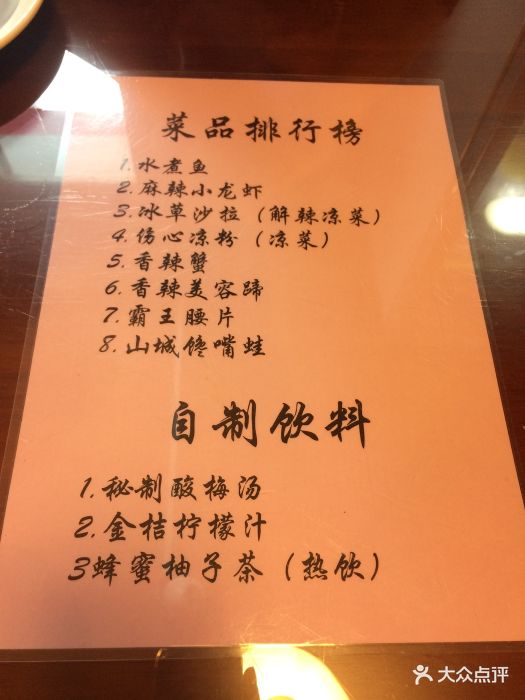 菜品排行榜
1.水煮鱼
2.麻辣小龙虾
3.冰草沙拉（解辣凉菜）
4.伤心凉粉（凉菜）
5.香辣蟹
6.香辣美容蹄
7.霸王腰片
8.山城馋嘴蛙
自制饮料
1.秘制酸梅汤
2.金桔柠檬汁
3蜂蜜柚子茶（热饮）
大众点评